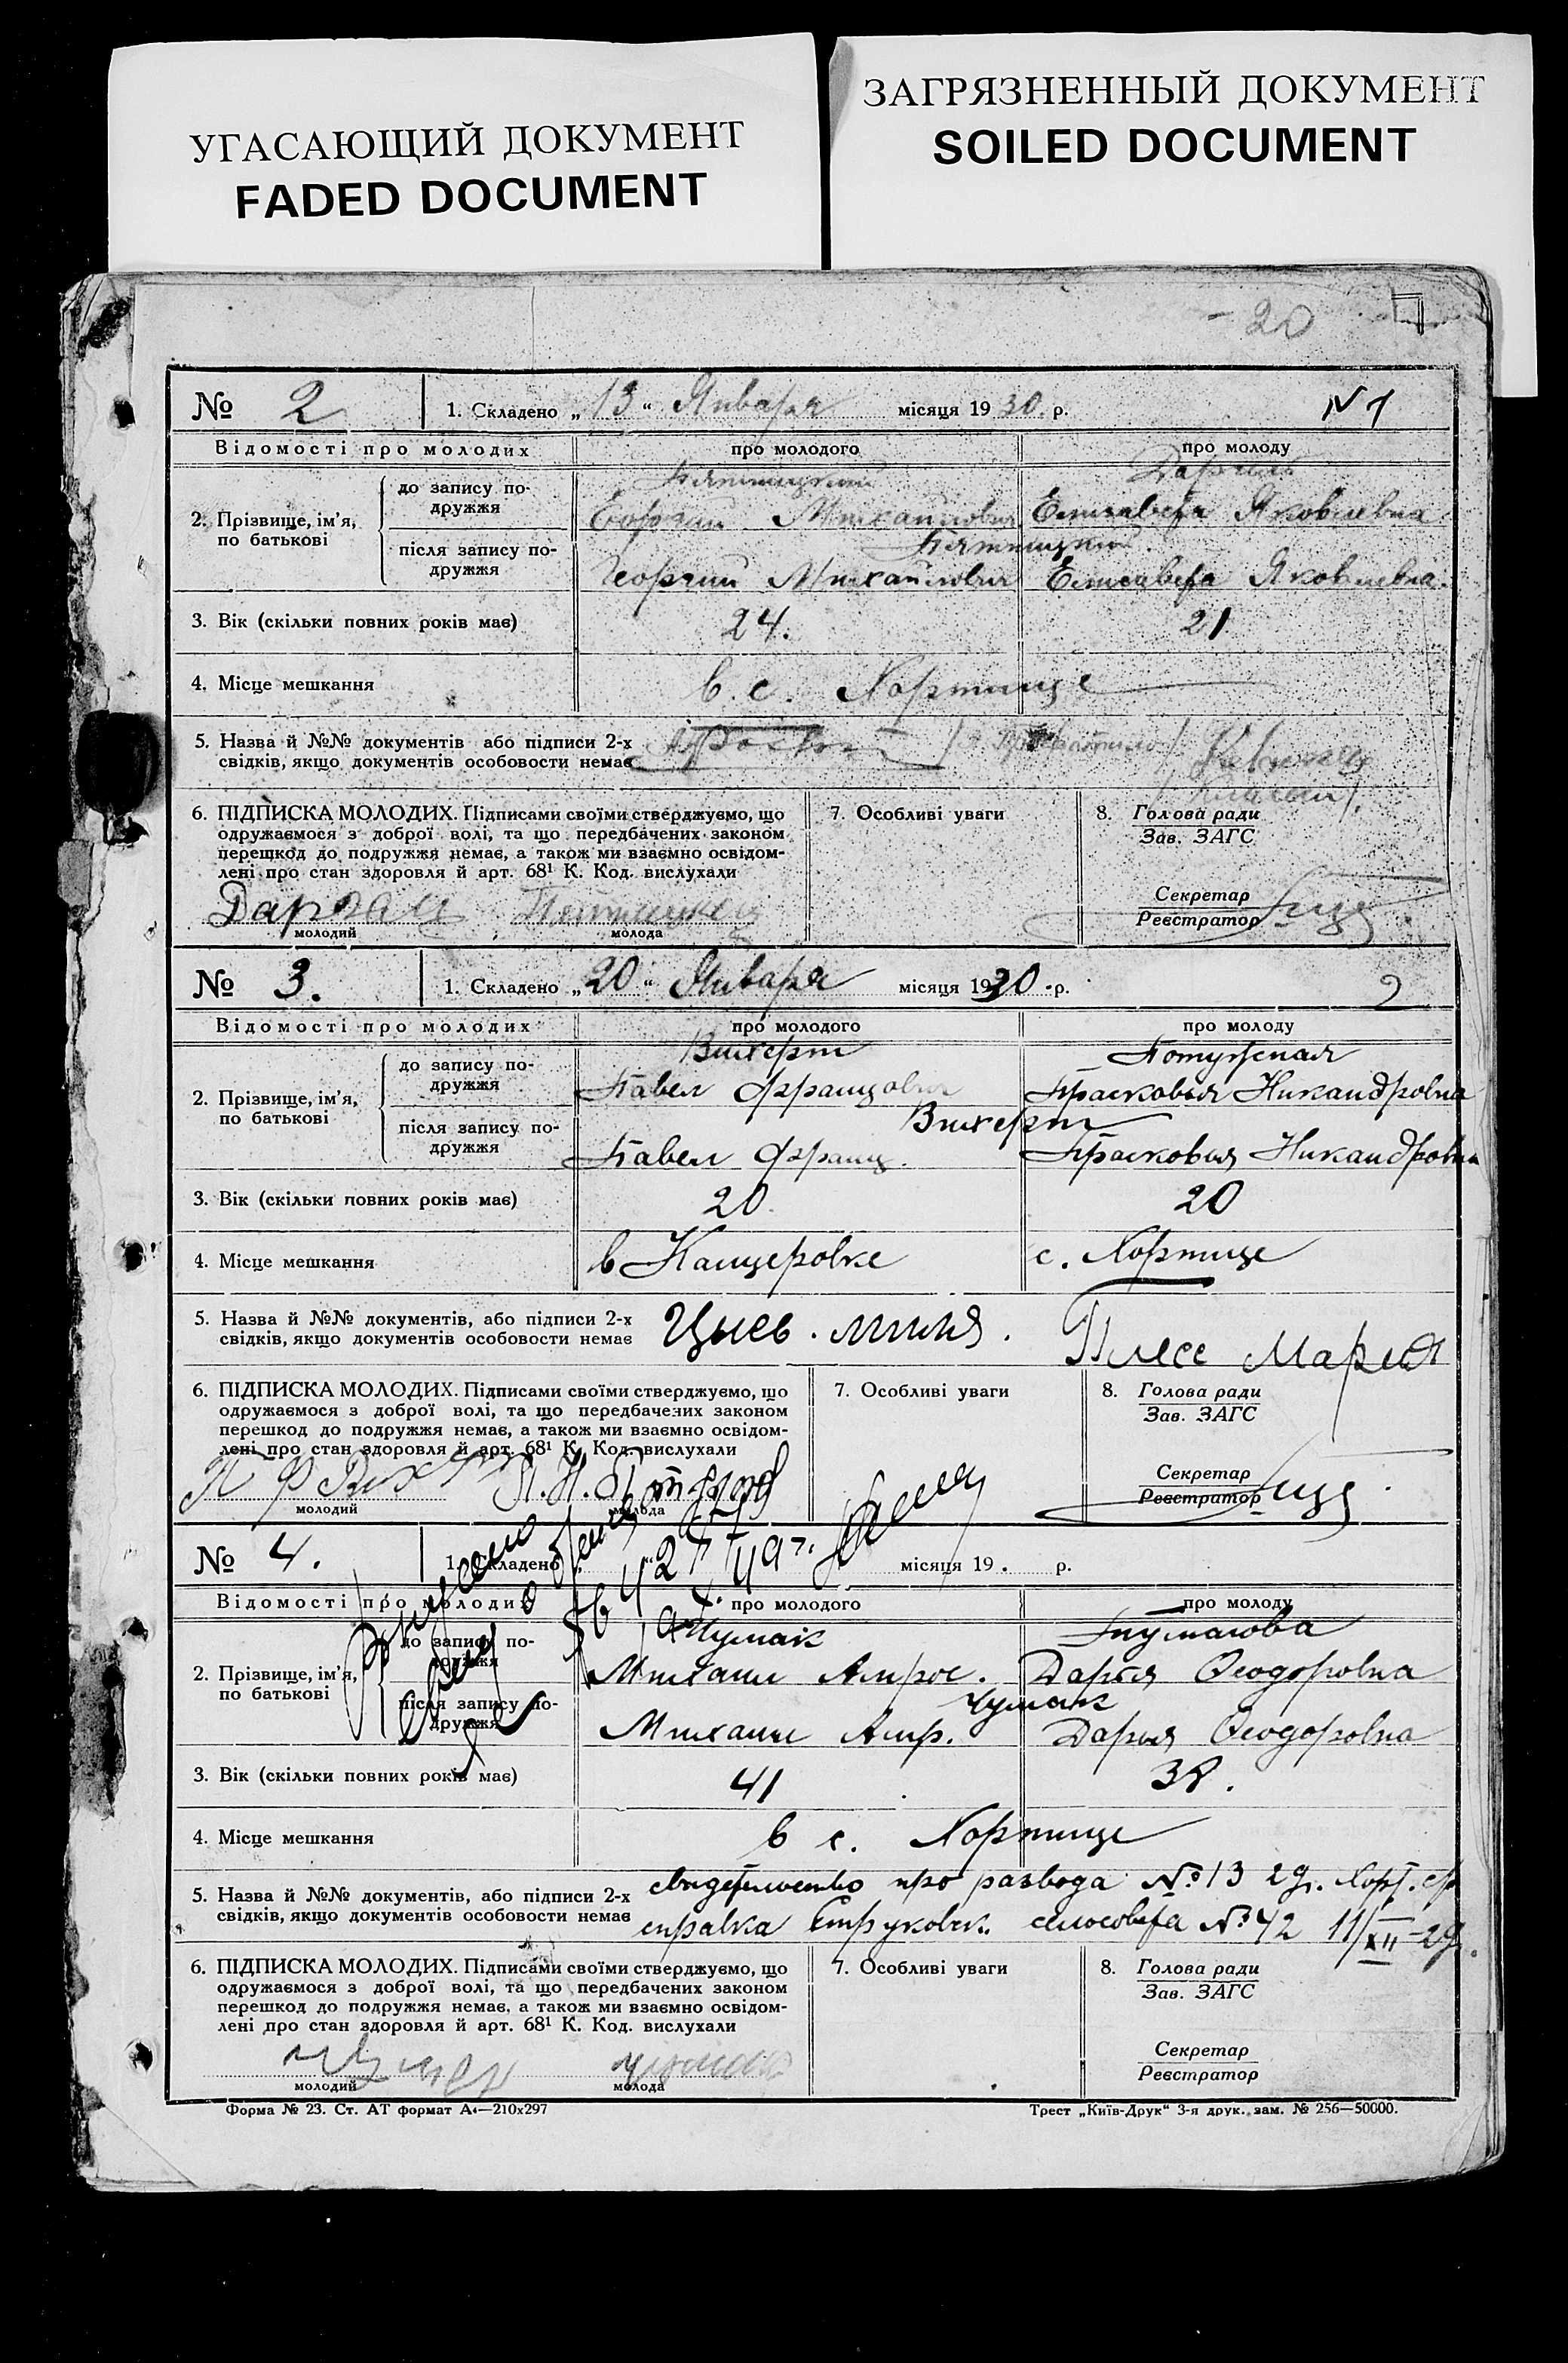 УГАСАЮЩИЙ ДОКУМЕНТ
FADED DOCUMENT
ЗАГРЯЗНЕННЫЙ ДОКУМЕНТ
SOILED DOCUMENT
- 20
№ 2
1. Складено „ 13 “ Января місяця 19 30. р.
N 1
Відомості про молодих
про молодого
про молоду
2. Прізвище, ім’я, по батькові
до запису по-
дружжя
після запису по-
дружжя
Михайлович
Елизавета Яковлевна
Георгий Михайлович
Елисавета Яковлевна.
3. Вік (скільки повних років має)
24.
21
4. Місце мешкання
в. с. Хортице
5. Назва й №№ документів або підписи 2-х
свідків, якщо документів особовости немає
6. ПІДПИСКА МОЛОДИХ. Підписами своїми стверджуємо, що
одружаємося з доброї волі, та що передбачених законом
перешкод до подружжя немає, а також ми взаємно освідом-
лені про стан здоровля й арт. 68¹ К. Код. вислухали
молодий
молода
7. Особливі уваги
8. Голова ради
Зав. ЗАГС
Секретар
Реєстратор
№ 3.
1. Складено „ 20 “ Января місяця 1930. р.
2
Відомості про молодих
про молодого
про молоду
2. Прізвище, ім’я,
по батькові
до запису по-
дружжя
після запису по-
дружжя
Вихерт
Павел Францович
Прасковья Никандровна
Вихерт
Павел Франц.
Прасковья Никандровна
3. Вік (скільки повних років має)
20.
20
4. Місце мешкання
в Канцеровке
с. Хортице
5. Назва й №№ документів, або підписи 2-х
свідків, якщо документів особовости немає
Мария
6. ПІДПИСКА МОЛОДИХ. Підписами своїми стверджуємо, що
одружаємося з доброї волі, та що передбачених законом
перешкод до подружжя немає, а також ми взаємно освідом-
лені про стан здоровля й арт. 68¹ К. Код. вислухали
П Ф
молодий
молода
7. Особливі уваги
8. Голова ради
Зав. ЗАГС
Секретар
Реєстратор
№ 4.
1. Складено
місяця 19 . р.
Відомості про молодих
про молодого
про молоду
2. Прізвище, ім’я,
по батькові
до запису по-
дружжя
після запису по-
дружжя
Чумак
Михаил Амрос.
Дарья Феодоровна
Чумак
Михаил Амр.
Дарья Феодоровна
3. Вік (скільки повних років має)
41
38.
4. Місце мешкання
в с. Хортице
5. Назва й №№ документів, або підписи 2-х
свідків, якщо документів особовости немає
свидетельство про развода №13 29г. Хорт. с/р
справка Струковск. сельсовета №42 11/XII-29.
6. ПІДПИСКА МОЛОДИХ. Підписами своїми стверджуємо, що
одружаємося з доброї волі, та що передбачених законом
перешкод до подружжя немає, а також ми взаємно освідом-
лені про стан здоровля й арт. 68¹ К. Код. вислухали
молодий
молода
7. Особливі уваги
8. Голова ради
Зав. ЗАГС
Секретар
Реєстратор
Форма № 23. Ст. АТ формат А₄—210х297
Трест „Київ-Друк“ 3-я друк. зам. № 256—50000.